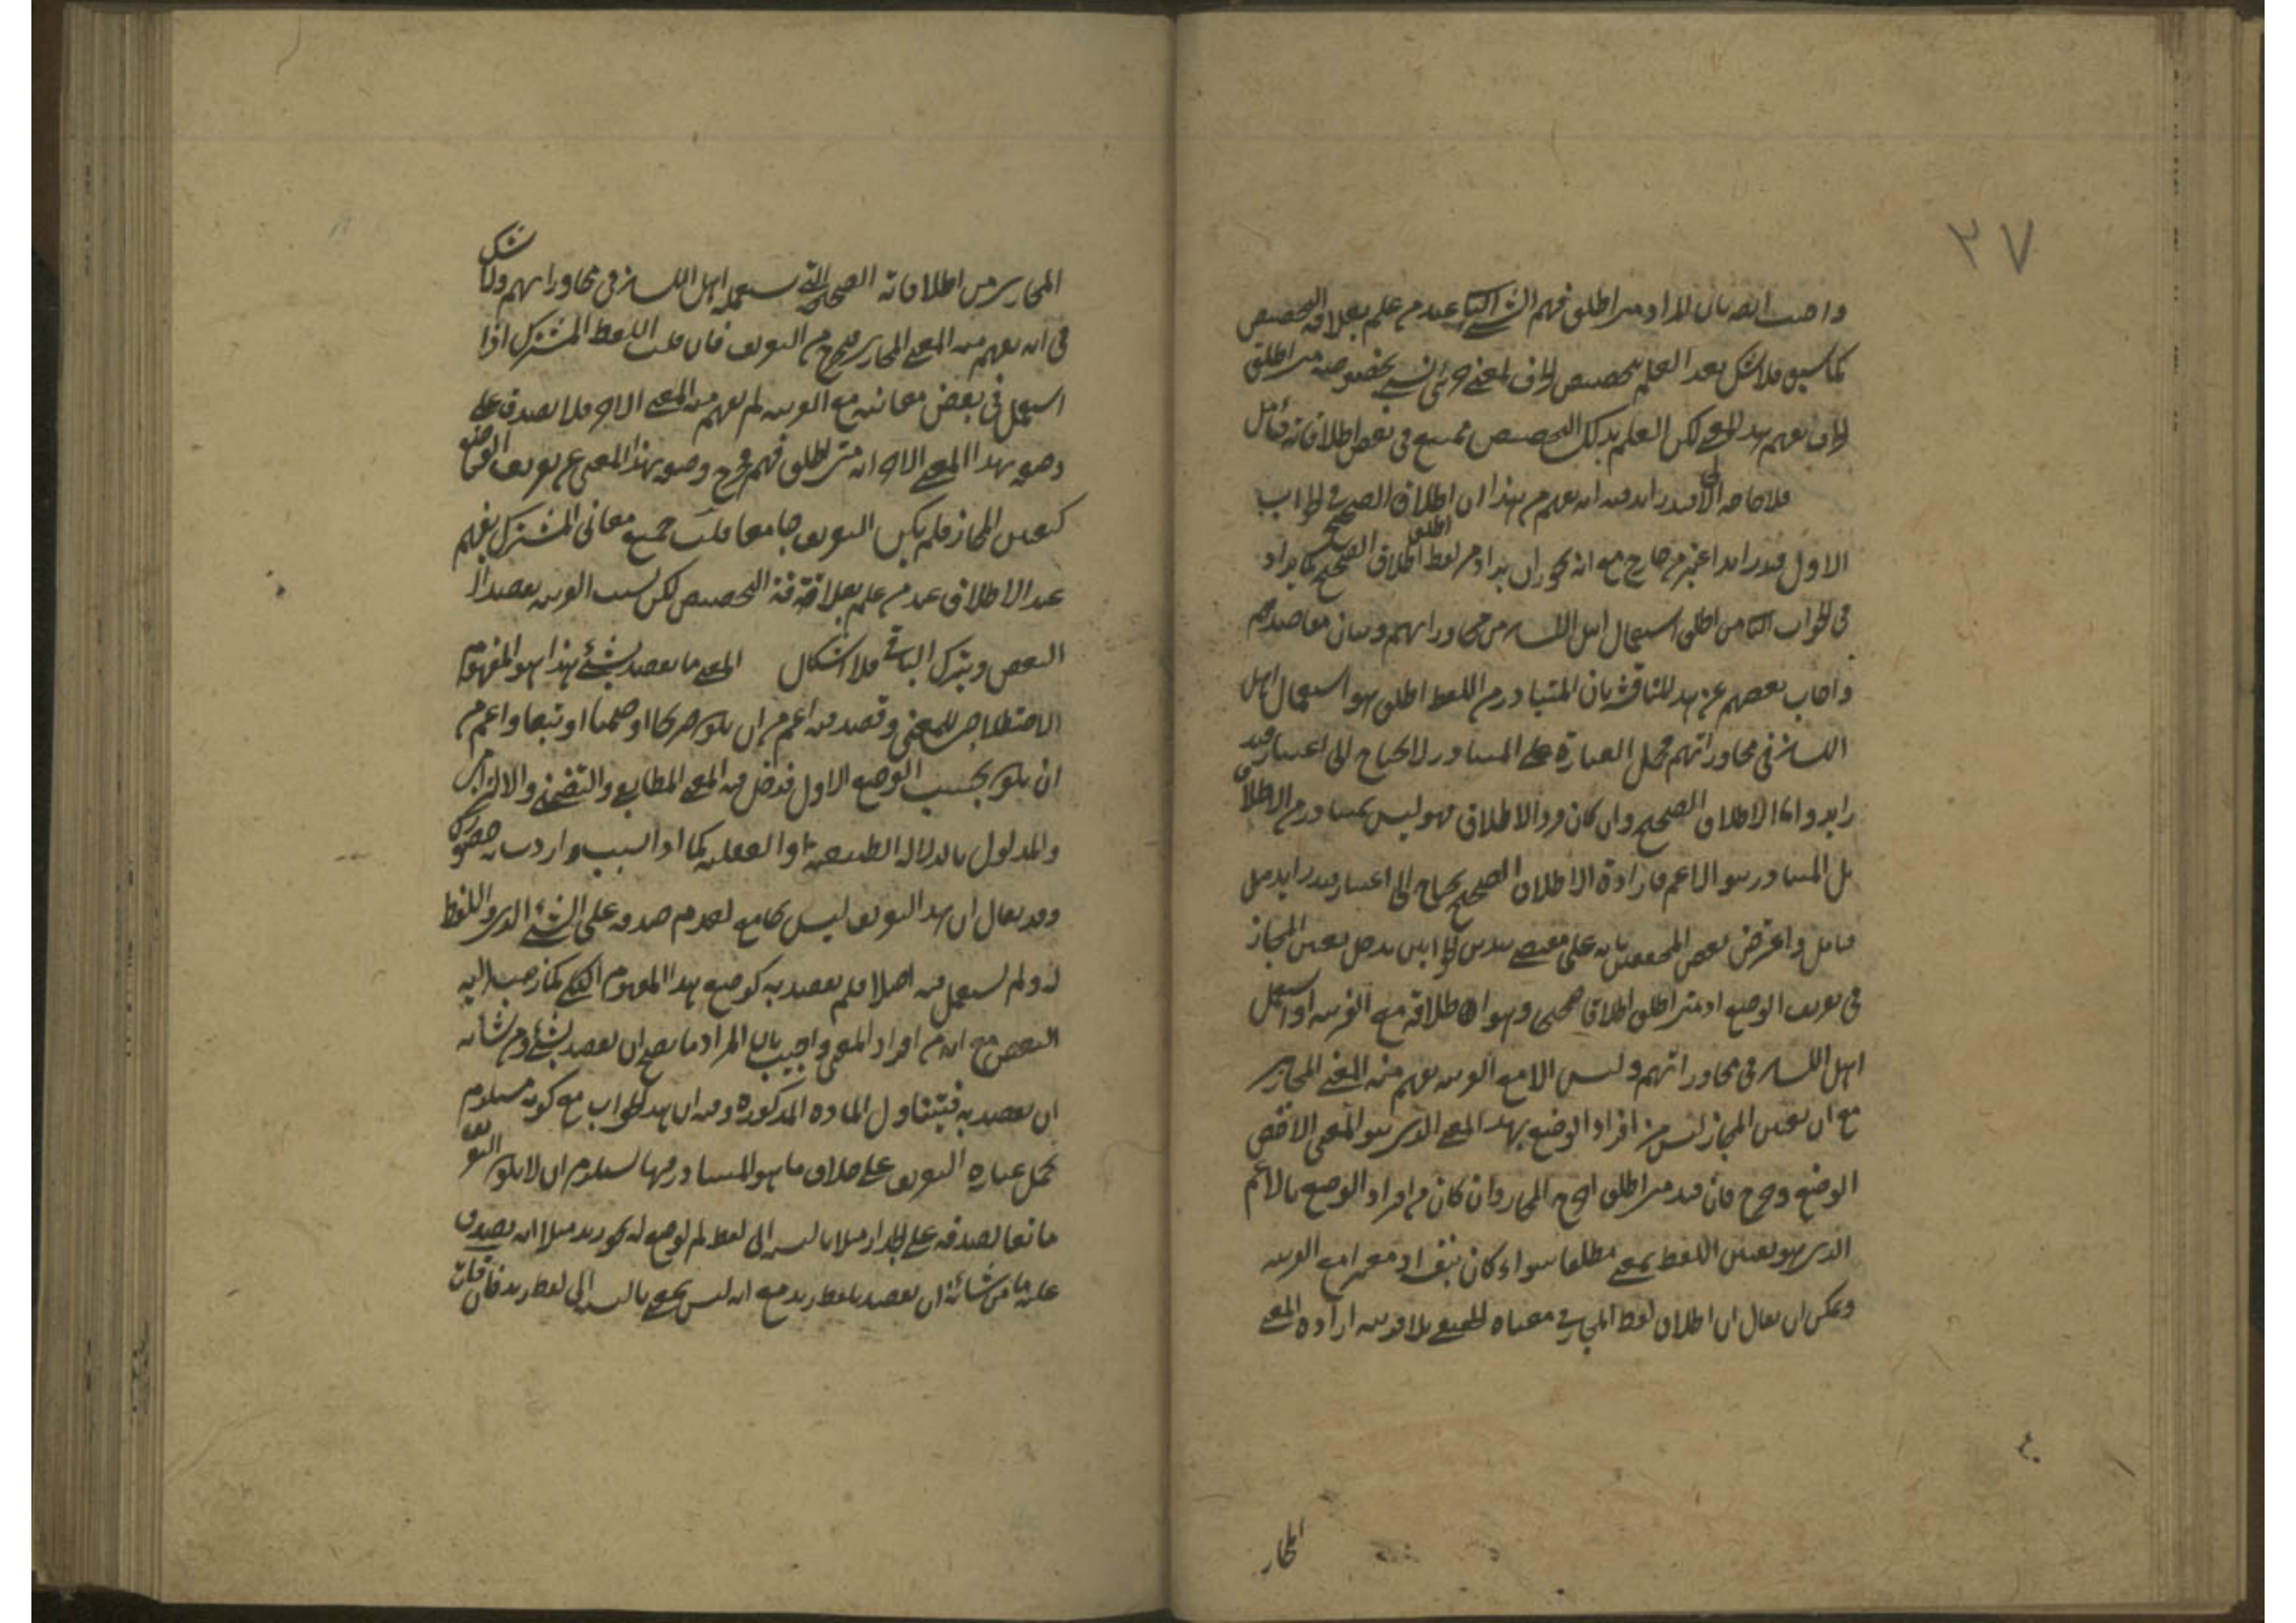 ٢٧
واجيب ايضا بان المراد متى اطلق فهم الشئ الثانى عند من علم بعلاقة التخصيص
كما سبق فلا شك بعد العلم بتخصيص الحرف لمعنى جزئى نسبى بخصوصه متى اطلق
الحرف يفهم هذا المعنى لكن العلم بذلك التخصيص ممتنع فى بعض اطلاقاته فتأمل
فلا حاجة الى قيد زايد فيه انه يفهم من هذا ان اطلاق الصحيح فى الجواب
الاول قيد زايد اعتبر من خارج مع انه يجوز ان يراد من لفظ اطلق اطلاق الصحيح كما يراد
فى الجواب الثانى من اطلق استعمال اهل اللسان من محاوراتهم وبيان مقاصدهم
واجاب بعضهم عن هذه المناقشة بان المتبادر من اللفظ اطلق هو استعمال اهل
اللسان فى محاوراتهم فحمل العبارة على المتبادر لا يحتاج الى اعتبار قيد
زايد واما الاطلاق الصحيح وان كان فرد الاطلاق فهو ليس بمتبادر من الاطلاق
بل المتبادر هو الاعم فارادة الاطلاق الصحيح يحتاج الى اعتبار قيد زايد
فتأمل واعترض بعض المحققين بانه على مقتضى هذين الجوابين يدخل تعيين المجاز
فى تعريف الوضع اذ متى اطلق اطلاقا صحيحا وهو اطلاقه مع القرينة او استعمل
اهل اللسان فى محاوراتهم وليس الا مع القرينة يفهم منه المعنى المجازى
مع ان تعيين المجاز ليس من افراد الوضع بهذا المعنى الذى هو المعنى الاخص
الوضع وخرج فان قيد متى اطلق اخرج المجاز وان كان من افراد الوضع بالاعم
الذى هو تعيين اللفظ بمعنى مطلقا سواء كان بنفسه او معه مع القرينة
ويمكن ان يقال ان اطلاق لفظ المجاز فى معناه الحقيقى بلا قرينة ارادة المعنى
المجاز
المجازى من اطلاقاته الصحيحة التى يستعمله اهل اللسان فى محاوراتهم ولا شك
فى انه يفهم منه المعنى المجازى فيخرج من التعريف فان قلت اللفظ المشترك اذا
استعمل فى بعض معانيه مع القرينة لم يفهم منه المعنى الاخر فلا يصدق على
وضعه بهذا المعنى الاخر انه متى اطلق فهم فخرج وضعه بهذا المعنى عن تعريف الوضع
كتعيين المجاز فلم يكن التعريف جامعا قلت جميع معانى المشترك يفهم
عند الاطلاق عند من علم بعلاقة التخصيص لكن بسبب القرينة يقصد
البعض ويترك الباقى فلا اشكال المعنى ما يقصد بشئ هذا هو المفهوم
الاصطلاحى للمعنى وقصد فيه اعم من ان يكون صريحا او ضمنا او تبعا واعم من
ان يكون بحسب الوضع الاول فدخل فيه المعنى المطابقى والتضمنى والالتزامى
والمدلول بالدلالة الطبيعية او العقلية كما اذا السبب واردت به حضورك
وقد يقال ان هذا التعريف ليس بجامع لعدم صدقه على الشئ الذى وضع اللفظ
له ولم يستعمل فيه اصلا فلم يقصد به كوضع هذا المفهوم الكلى كما ذهب اليه
البعض مع انه من افراد المعنى واجيب بان المراد ما يصح ان يقصد بشئ ومن شأنه
ان يقصد به فيتناول المادة المذكورة وفيه ان هذا الجواب مع كونه مستلزم
حمل عبارة التعريف على خلاف ما هو المتبادر منها يستلزم ان لا يكون التعريف
مانعا لصدقه على الجدار مثلا بالنسبة الى لفظ لم يوضع له كزيد مثلا انه يصدق
عليه ما من شأنه ان يقصد بلفظ زيد مع انه ليس بمعنى بالنسبة الى لفظ زيد فان قلت